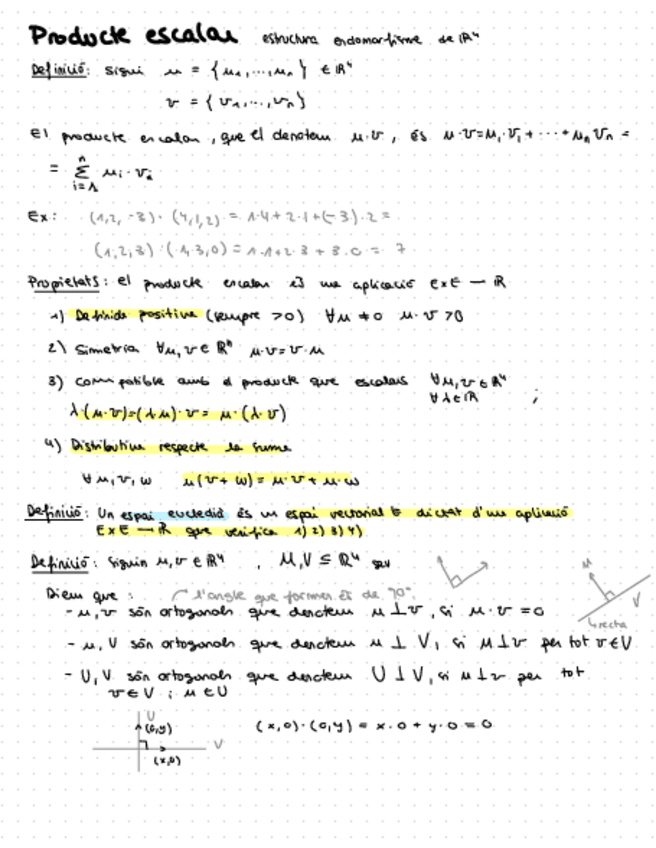 Producte escalar estructura endomorfisme de ℝⁿ
Definició: Sigui u = {u₁,...,uₙ} ∈ ℝⁿ
v = {v₁,...,vₙ}
El producte escalar, que el denotem u·v, és u·v=u₁·v₁ + ··· + uₙ vₙ =
= Σ_{i=1}^{n} uᵢ · vᵢ
Ex: (1,2,-3) · (4,1,2) = 1·4+2·1+(-3)·2 =
(1,2,3) · (1,3,0) = 1·1+2·3 + 3·0 = 7
Propietats: el producte escalar és una aplicació E×E → ℝ
1) Definida positiva (sempre >0) ∀u ≠ 0 u·v >0
2) Simetria ∀u,v ∈ ℝⁿ u·v = v·u
3) Compatible amb el producte que escalars ∀u,v ∈ ℝⁿ
∀λ∈ℝ ;
λ·(u·v)=(λu)·v = u·(λ·v)
4) Distributiva respecte la suma
∀u,v,w u(v+w) = u·v + u·w
Definició: Un espai eucledià és un espai vectorial E dictat d'una aplicació
E×E → ℝ que verifica 1) 2) 3) 4)
Definició: Siguin u,v ∈ ℝⁿ , U,V ⊆ ℝⁿ sev
Diem que : l'angle que formen és de 90°.
- u,v són ortogonals que denotem u⊥v, si u·v = 0
- u, V són ortogonals que denotem u ⊥ V, si u⊥v per tot v∈V
- U,V són ortogonals que denotem U⊥V, si u⊥v per tot
v∈V i u∈U
u
V
recta
U
(0,y)
V
(x,0)
(x,0)·(0,y) = x·0 + y·0 = 0